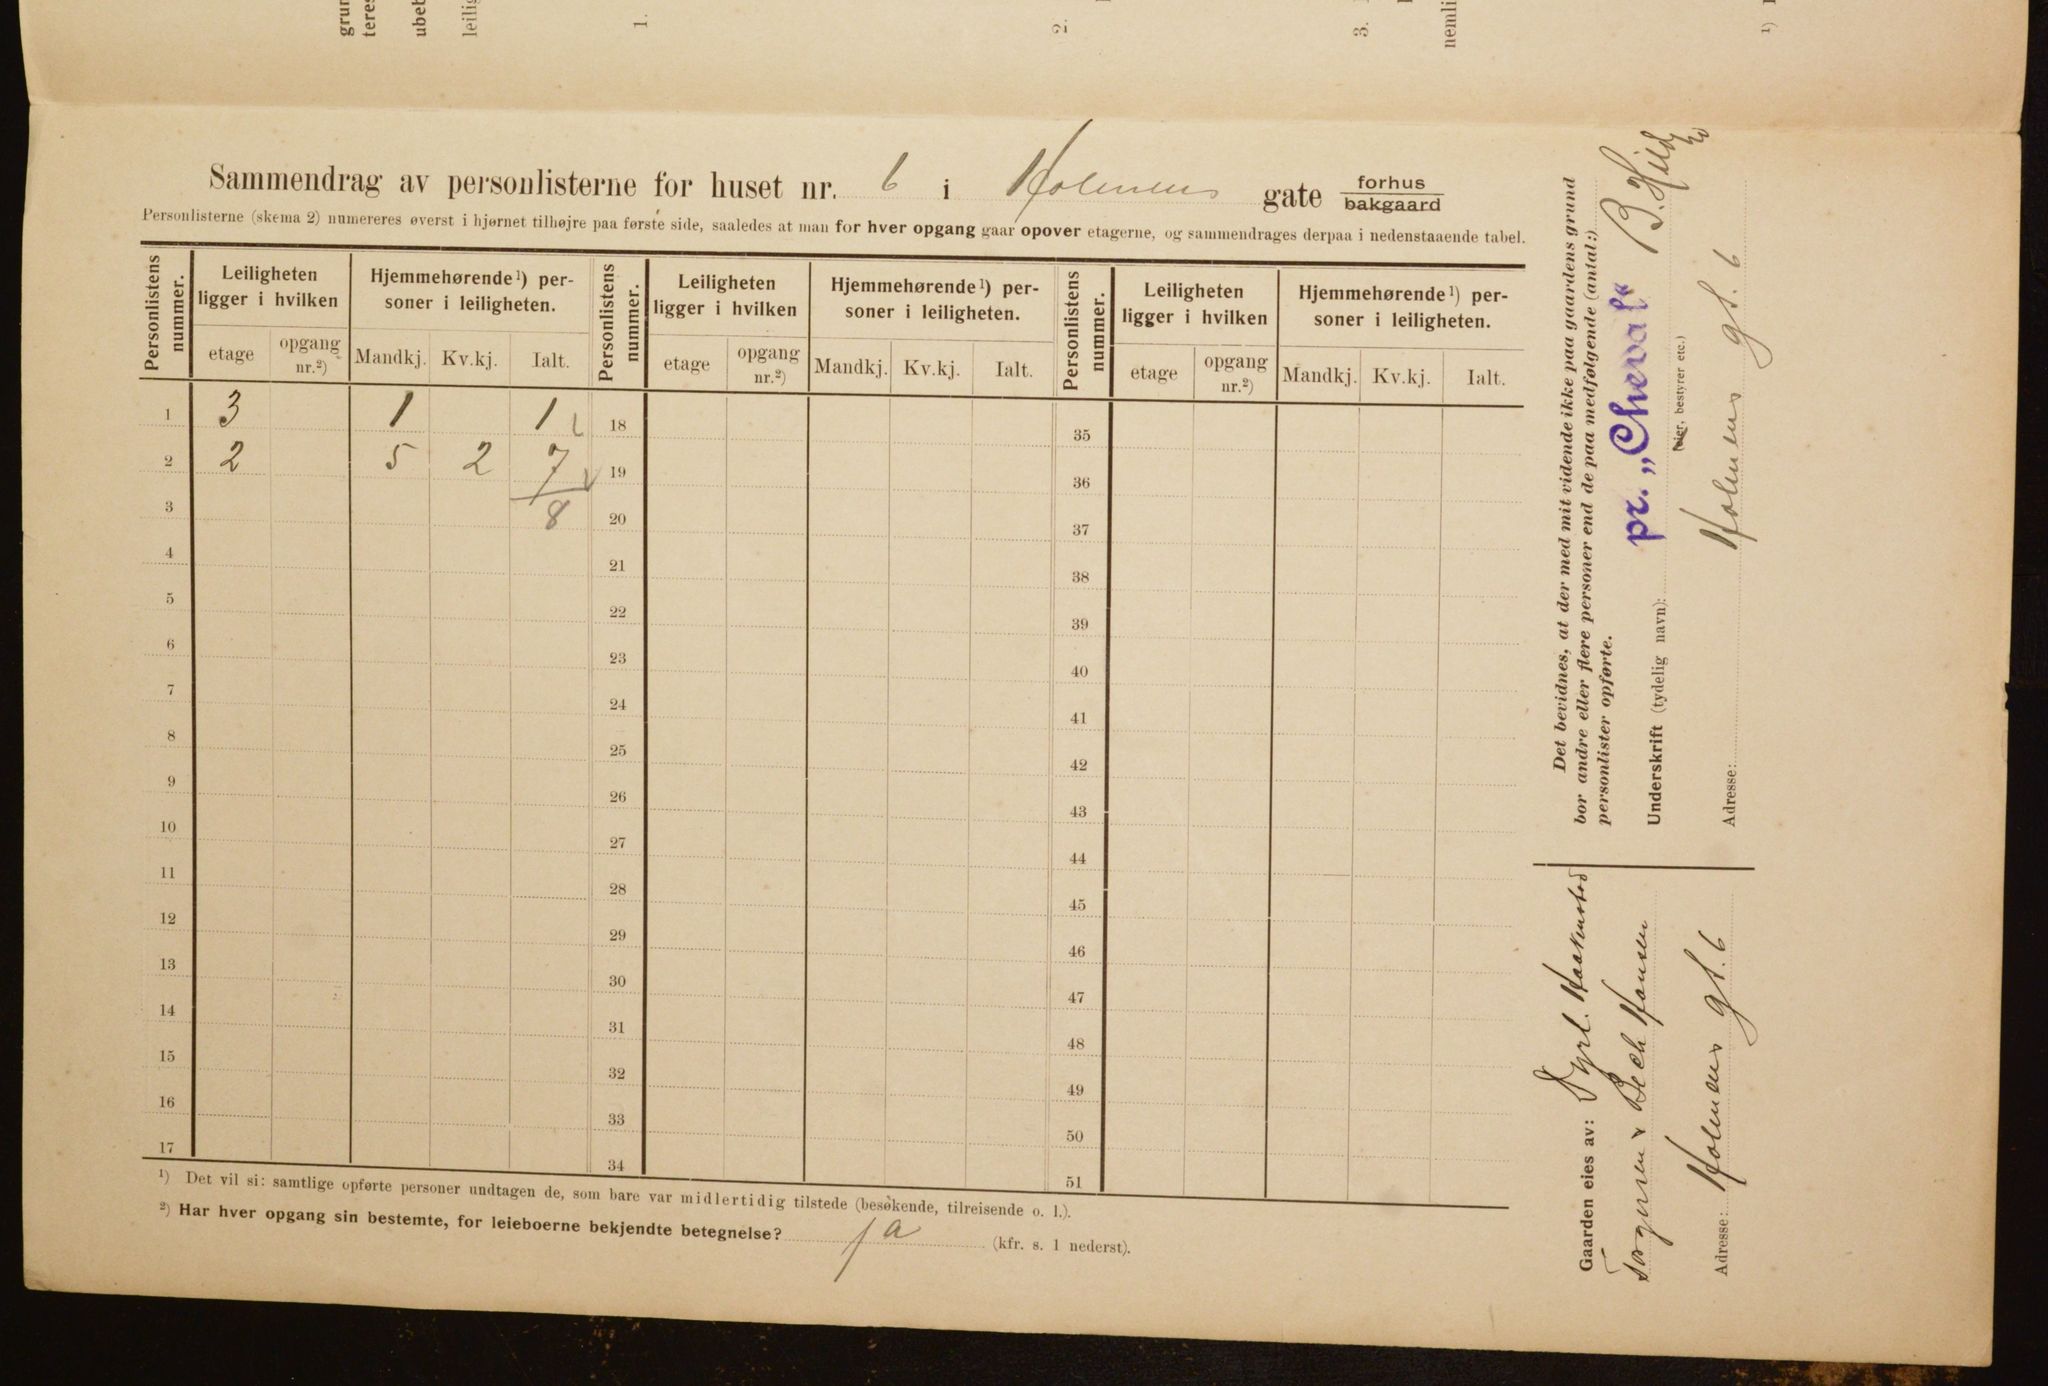 grun
teres
ubeb
leilig
1.
2.
3.
nemli
1)
Sammendrag av personlisterne for huset nr. 6 i Holmens gate forhus
bakgaard
Personlisterne (skema 2) numereres øverst i hjørnet tilhøjre paa første side, saaledes at man for hver opgang gaar opover etagerne, og sammendrages derpaa i nedenstaaende tabel.
Personlistens nummer. Leiligheten ligger i hvilken Hjemmehørende¹) personer i leiligheten. Personlistens nummer. Leiligheten ligger i hvilken Hjemmehørende¹) personer i leiligheten. Personlistens nummer. Leiligheten ligger i hvilken Hjemmehørende¹) personer i leiligheten.
etage opgang nr.²) Mandkj. Kv.kj. Ialt. etage opgang nr.²) Mandkj. Kv.kj. Ialt. etage opgang nr.²) Mandkj. Kv.kj. Ialt.
1 3 1 1 18 35
2 2 5 2 7 19 36
3 8 20 37
4 21 38
5 22 39
6 23 40
7 24 41
8 25 42
9 26 43
10 27 44
11 28 45
12 29 46
13 30 47
14 31 48
15 32 49
16 33 50
17 34 51
¹) Det vil si: samtlige opførte personer undtagen de, som bare var midlertidig tilstede (besøkende, tilreisende o. l.).
²) Har hver opgang sin bestemte, for leieboerne bekjendte betegnelse? ja (kfr. s. 1 nederst).
Det bevidnes, at der med mit vidende ikke paa gaardens grund
bor andre eller flere personer end de paa medfølgende (antal:)
personlister opførte.
Underskrift (tydelig navn): pr. „Cheval“ B.
(eier, bestyrer etc.)
Adresse: Holmens gt. 6
Gaarden eies av: Dyrl. Haakensted
Bech Hansen
Adresse: Holmens gt. 6